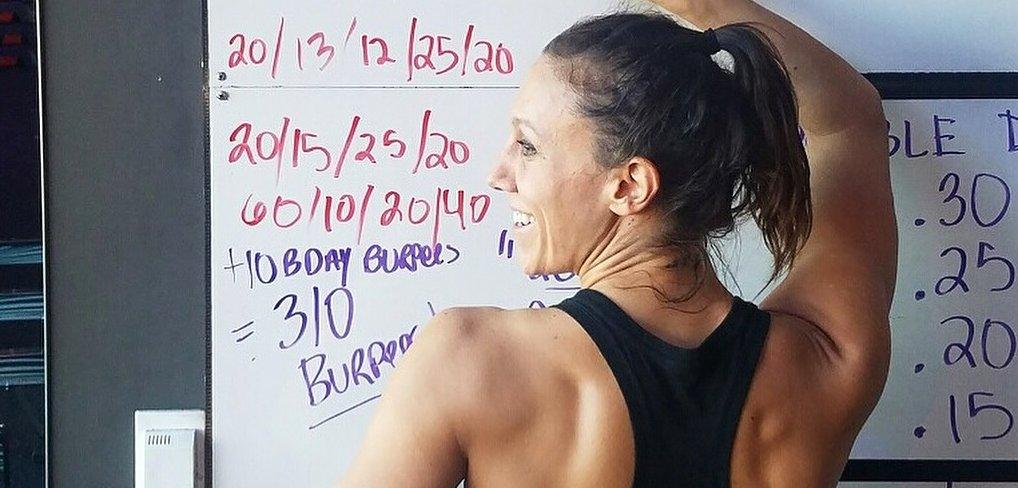 20/13/12/25/20
20/15/25/20
60/10/20/40
+10 BDAY BURPEES
= 310
BURPEES
.30
.25
.20
.15